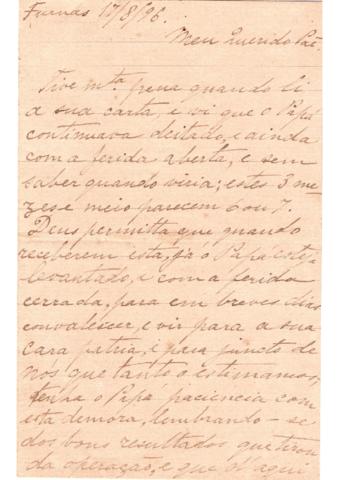 Furnas 17/8/96.
Meu Querido Pae
Tive m.ta pena quando li
a sua carta, e vi que o Papá
continuava deitado, e ainda
com a ferida aberta, e sem
saber quando viria; estes 3 me-
zes e meio parecem 6 ou 7.
Deus permitta que quando
receberem esta, já o Papá esteja
levantado, e com a ferida
cerrada, para em breves dias
convalescer, e vir para a sua
cara patria, e para juncto de
nós que tanto o estimamos,
tenha o Papá paciencia com
esta demora, lembrando-se
dos bons resultados que tirou
da operação, e que se aqui